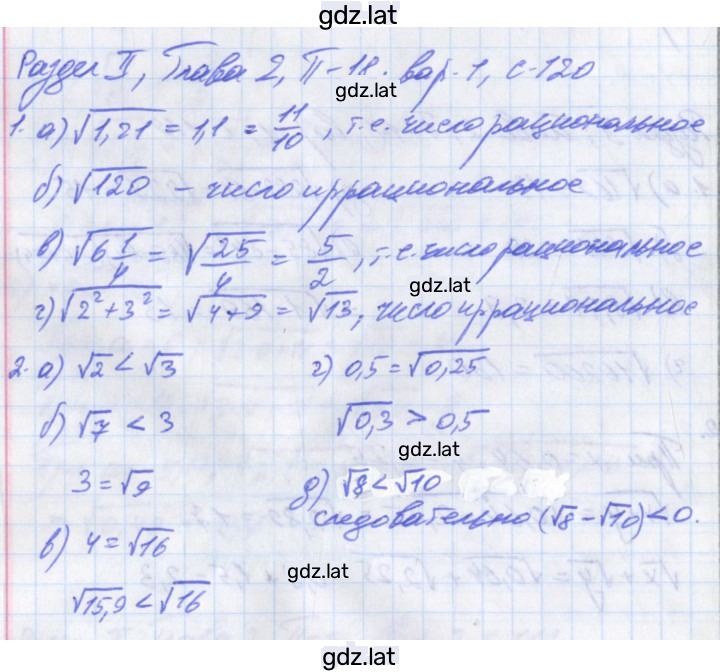 gdz.lat
Раздел II, Глава 2, П-18. вар. 1, с-120
gdz.lat
1. а) √1,21 = 1,1 = 11/10, т.е. число рациональное
б) √120 – число иррациональное
в) √(6 1/4) = √(25/4) = 5/2, т.е. число рациональное
gdz.lat
г) √(2²+3²) = √(4+9) = √13, число иррациональное
2. а) √2 < √3
б) √7 < 3
3 = √9
в) 4 = √16
√15,9 < √16
г) 0,5 = √0,25
√0,3 > 0,5
gdz.lat
д) √8 < √10
следовательно (√8 – √10) < 0.
gdz.lat
gdz.lat